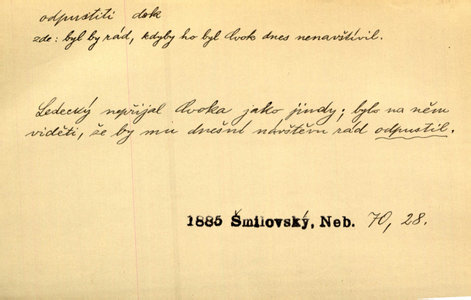 odpustiti dok
zde: byl by rád, kdyby ho byl Cvok dnes nenavštívil.
Ledecký nepřijal Cvoka jako jindy; bylo na něm
viděti, že by mu dnešní návštěvu rád odpustil.
1885 Šmilovský, Neb. 70, 28.